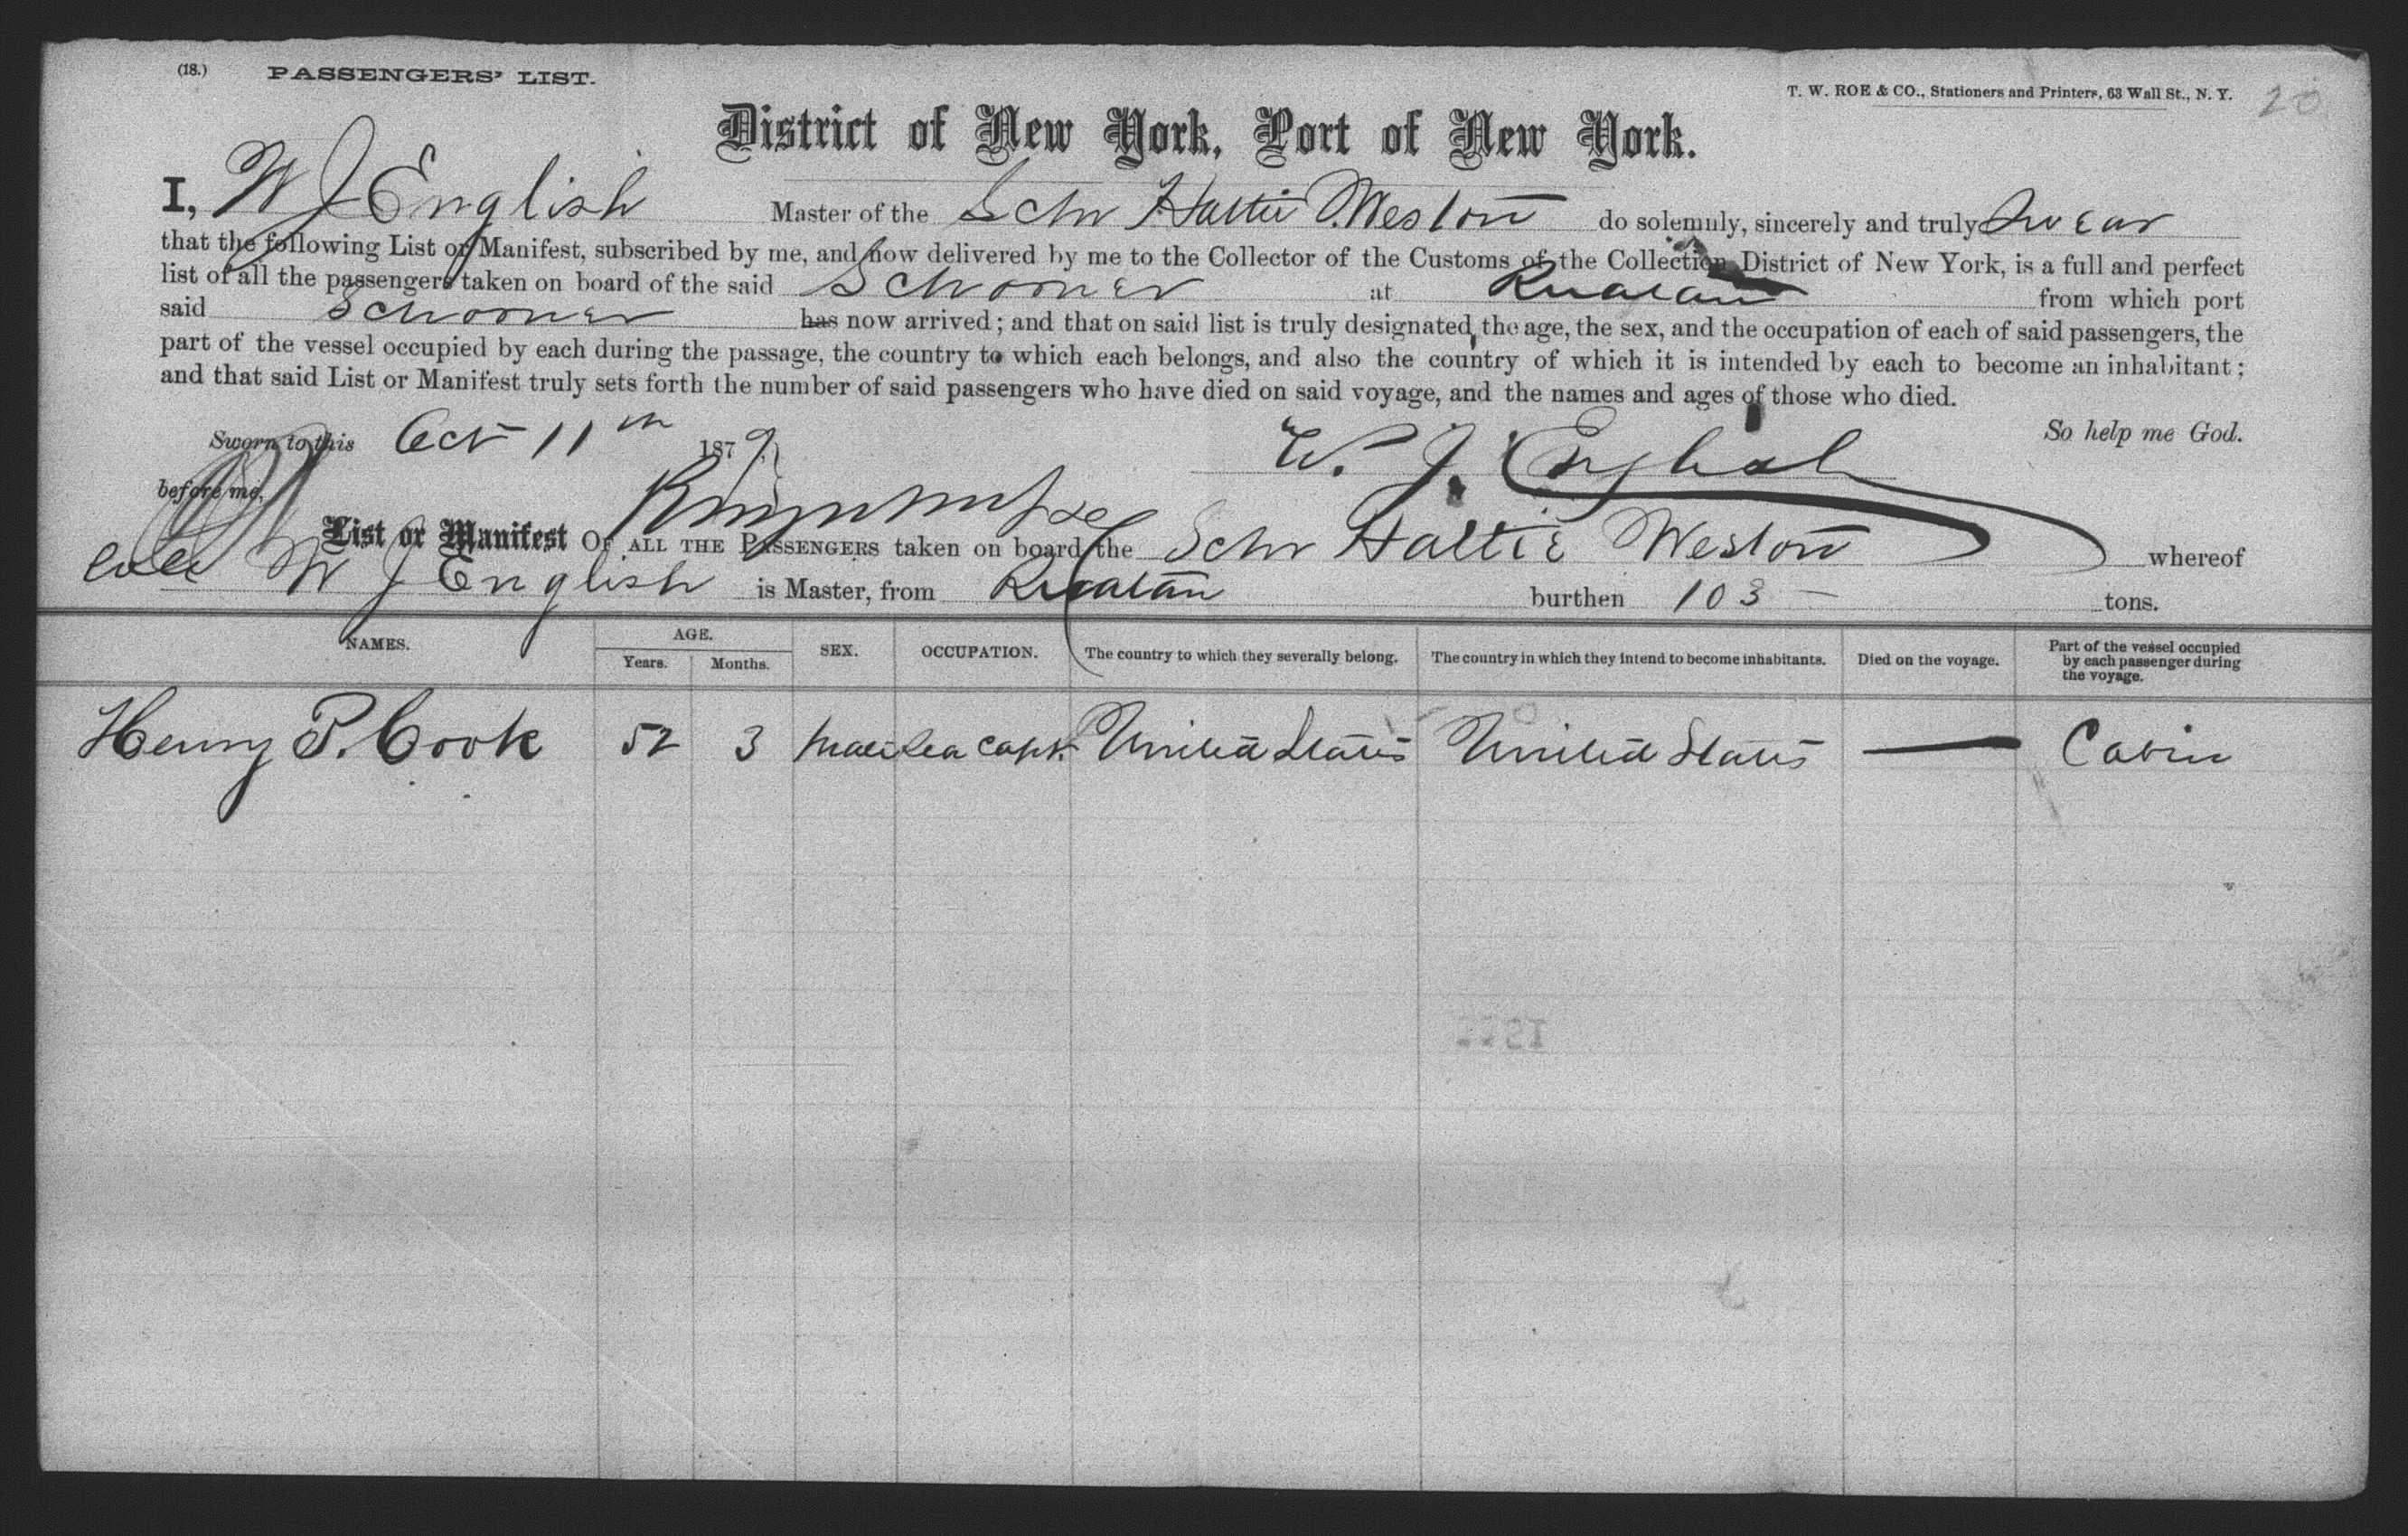 (18.) PASSENGERS' LIST.
T. W. ROE & CO., Stationers and Printers, 63 Wall St., N. Y. 20
District of New York, Port of New York.
I, W J English Master of the Schr Hattie Weston do solemnly, sincerely and truly Swear
that the following List or Manifest, subscribed by me, and now delivered by me to the Collector of the Customs of the Collection District of New York, is a full and perfect
list of all the passengers taken on board of the said Schooner at Ruatan from which port
said Schooner has now arrived; and that on said list is truly designated the age, the sex, and the occupation of each of said passengers, the
part of the vessel occupied by each during the passage, the country to which each belongs, and also the country of which it is intended by each to become an inhabitant;
and that said List or Manifest truly sets forth the number of said passengers who have died on said voyage, and the names and ages of those who died.
Sworn to this Oct 11th 1879 So help me God.
before me, W. J. English
List or Manifest OF ALL THE PASSENGERS taken on board the Schr Hattie Weston whereof
W J English is Master, from Ruatan burthen 103 tons.
NAMES. AGE. Years. Months. SEX. OCCUPATION. The country to which they severally belong. The country in which they intend to become inhabitants. Died on the voyage. Part of the vessel occupied by each passenger during the voyage.
Henry P. Cook 52 3 Male Sea Capt. United States United States — Cabin